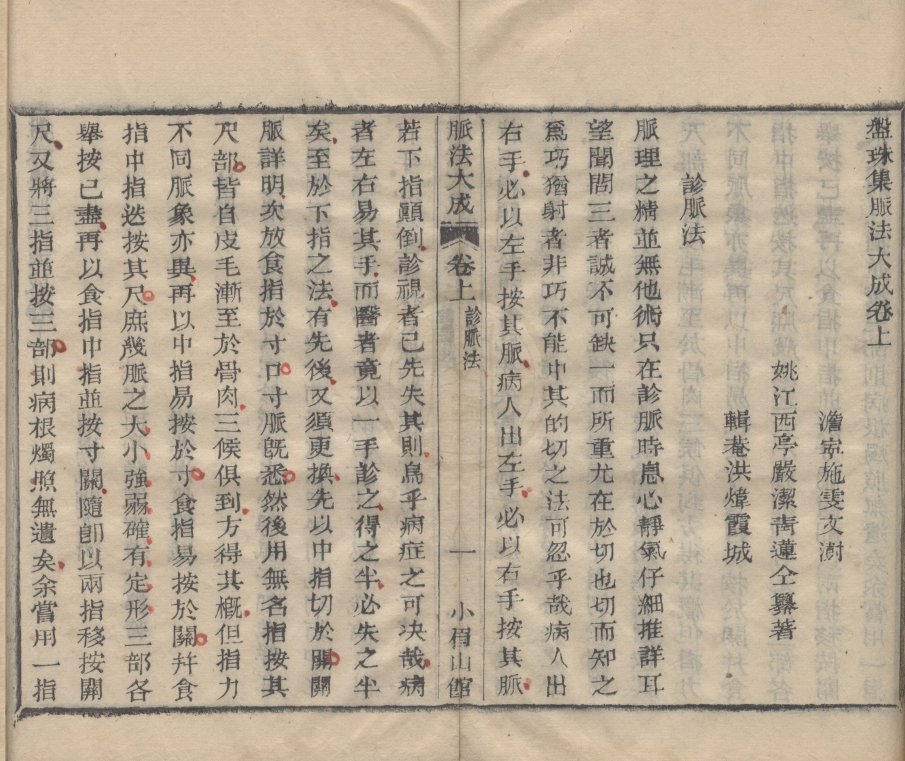 盤珠集脈法大成卷上
澹寧施雯文澍
姚江西亭嚴潔青蓮仝纂著
輯菴洪煒霞城
診脈法
脈理之精並無他術只在診脈時息心靜氣仔細推詳耳
望聞問三者誠不可缺一而所重尤在於切也切而知之
爲巧猶射者非巧不能中其的切之法可忽乎哉病人出
右手必以左手按其脈病人出左手必以右手按其脈
脈法大成 卷上 診脈法 一 小眉山館
若下指顚倒診視者已先失其則烏乎病症之可决哉病
者左右易其手而醫者竟以一手診之得之半必失之半
矣至於下指之法有先後又須更換先以中指切於關關
脈詳明次放食指於寸口寸脈旣悉然後用無名指按其
尺部皆自皮毛漸至於骨肉三候俱到方得其概但指力
不同脈象亦異再以中指易按於寸食指易按於關幷食
指中指迭按其尺庶幾脈之大小強弱確有定形三部各
舉按已盡再以食指中指並按寸關隨卽以兩指移按關
尺又將三指並按三部則病根燭照無遺矣余嘗用一指